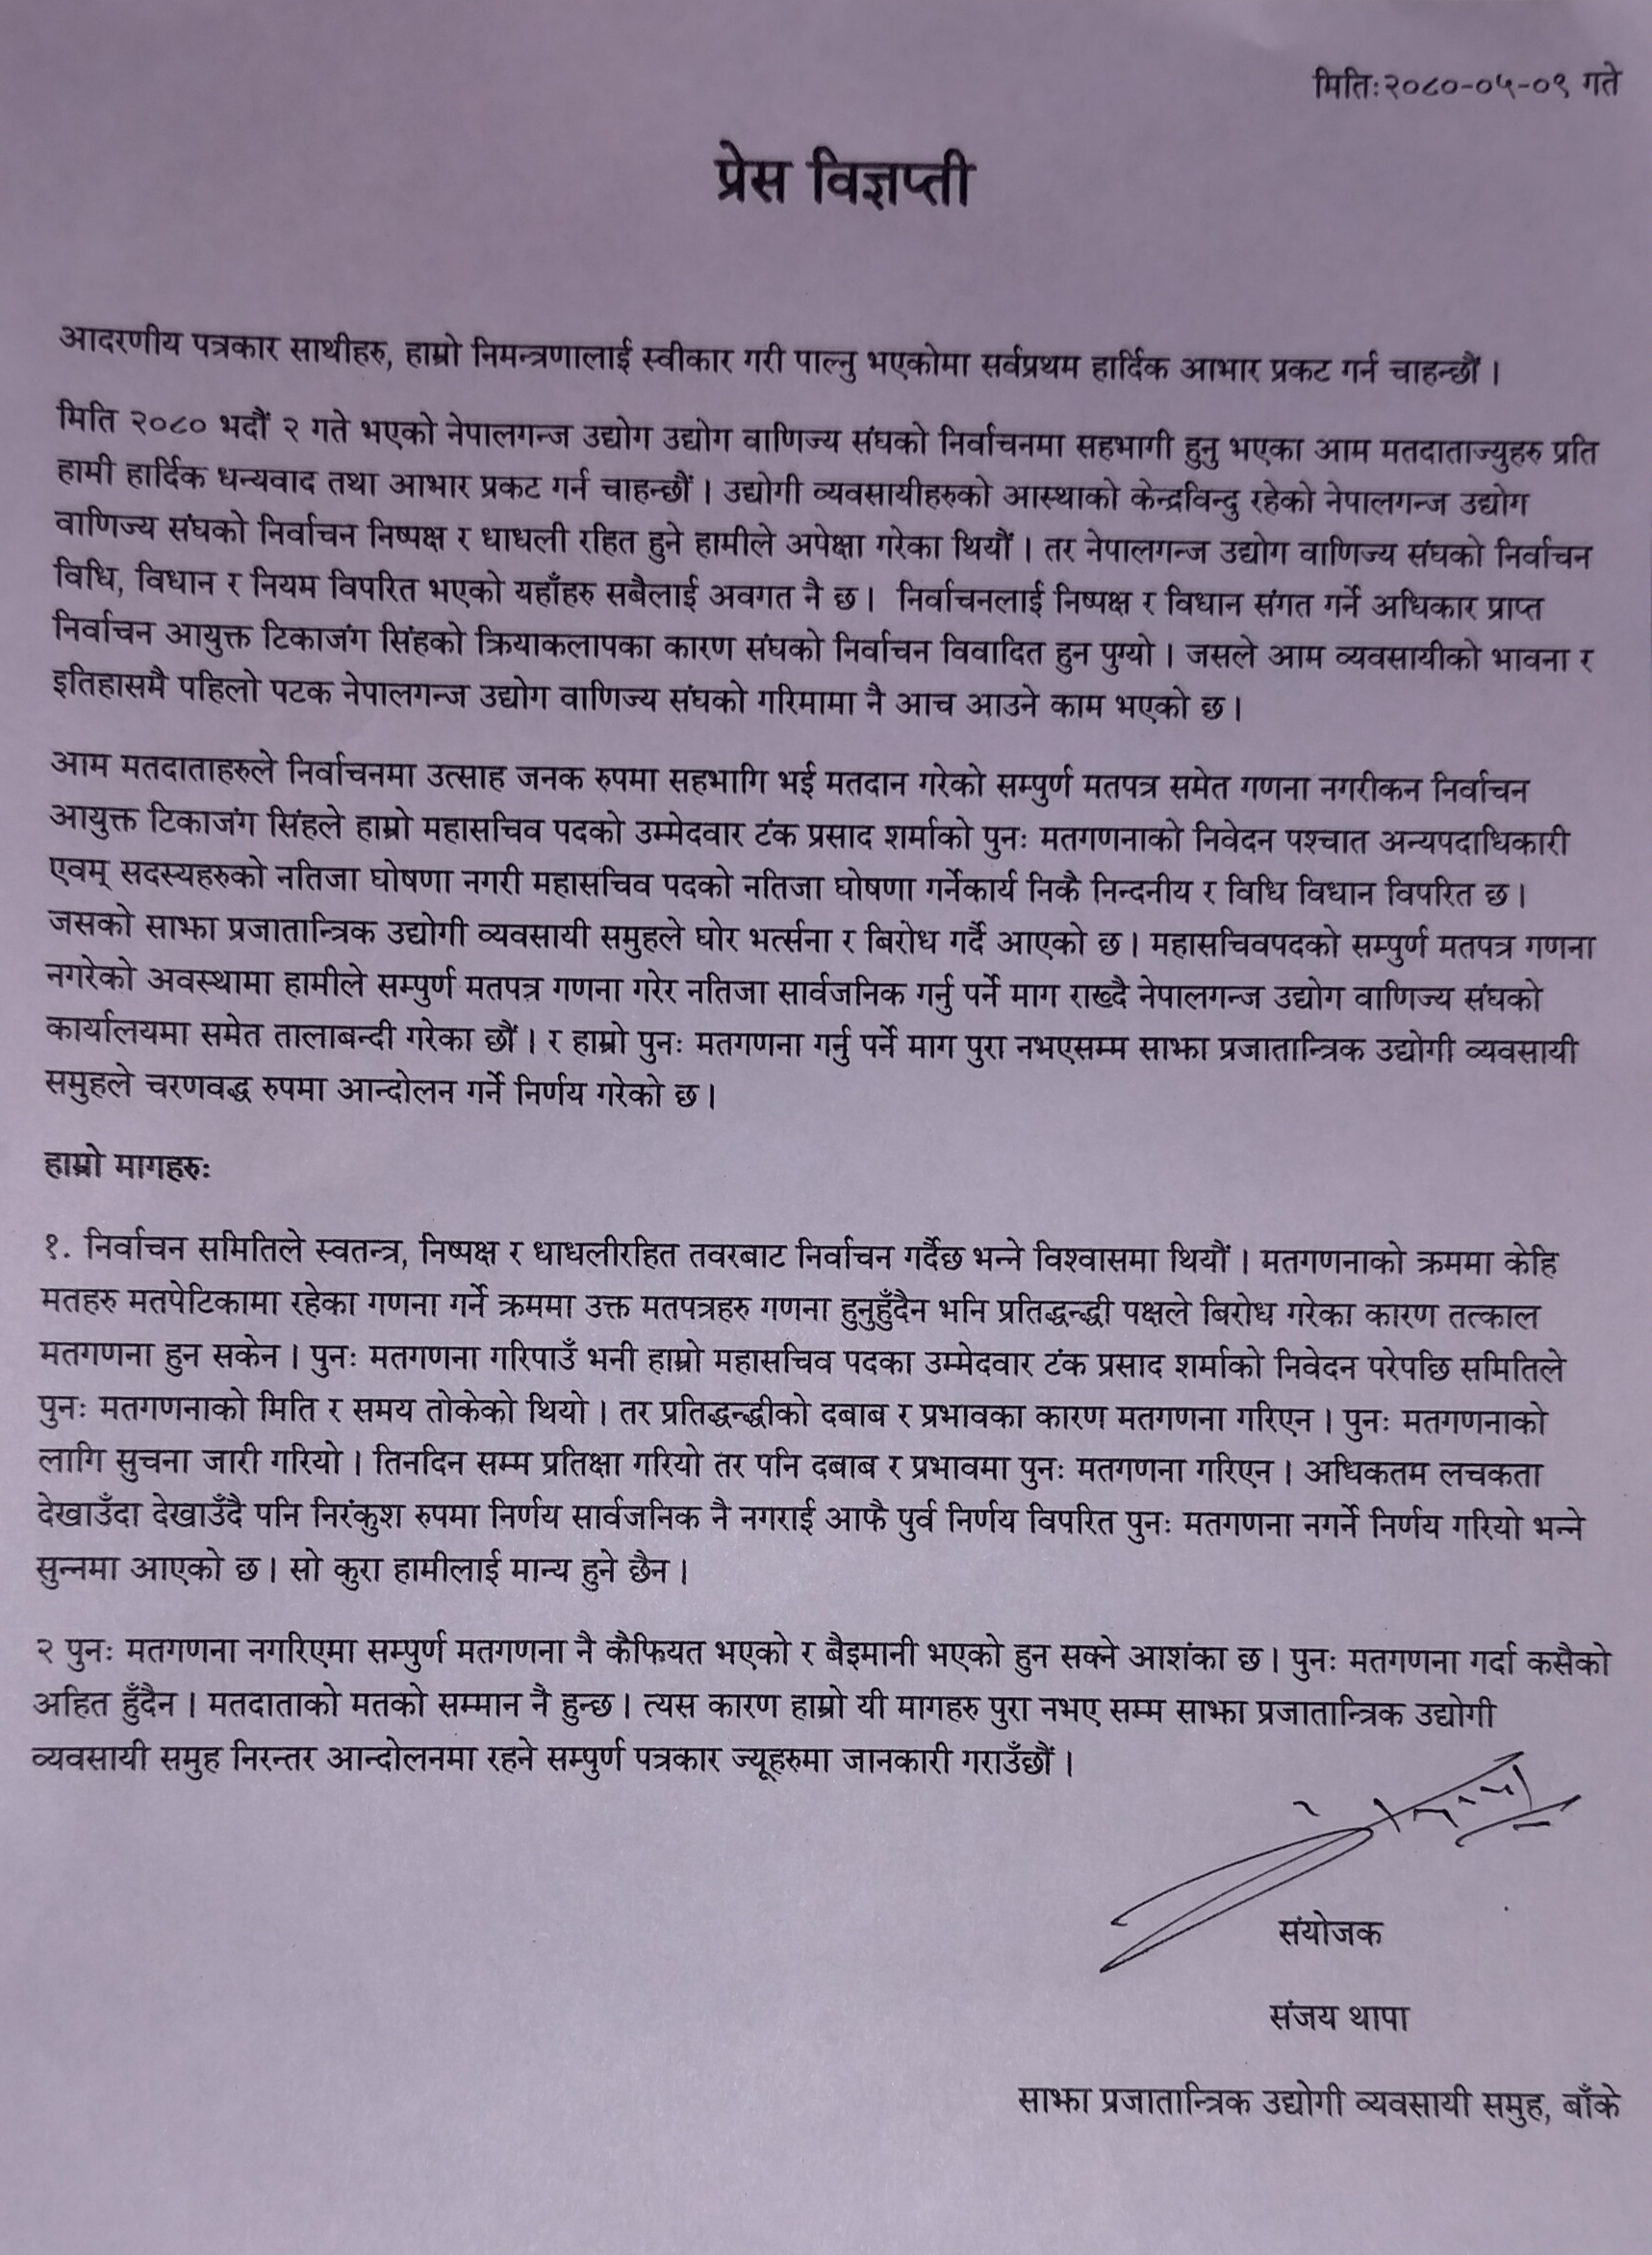 मितिः२०८०-०५-०९ गते
प्रेस विज्ञप्ती
आदरणीय पत्रकार साथीहरु, हाम्रो निमन्त्रणालाई स्वीकार गरी पाल्नु भएकोमा सर्वप्रथम हार्दिक आभार प्रकट गर्न चाहन्छौं ।
मिति २०८० भदौं २ गते भएको नेपालगन्ज उद्योग उद्योग वाणिज्य संघको निर्वाचनमा सहभागी हुनु भएका आम मतदाताज्युहरु प्रति
हामी हार्दिक धन्यवाद तथा आभार प्रकट गर्न चाहन्छौं । उद्योगी व्यवसायीहरुको आस्थाको केन्द्रविन्दु रहेको नेपालगन्ज उद्योग
वाणिज्य संघको निर्वाचन निष्पक्ष र धाधली रहित हुने हामीले अपेक्षा गरेका थियौं । तर नेपालगन्ज उद्योग वाणिज्य संघको निर्वाचन
विधि, विधान र नियम विपरित भएको यहाँहरु सबैलाई अवगत नै छ । निर्वाचनलाई निष्पक्ष र विधान संगत गर्ने अधिकार प्राप्त
निर्वाचन आयुक्त टिकाजंग सिंहको क्रियाकलापका कारण संघको निर्वाचन विवादित हुन पुग्यो । जसले आम व्यवसायीको भावना र
इतिहासमै पहिलो पटक नेपालगन्ज उद्योग वाणिज्य संघको गरिमामा नै आच आउने काम भएको छ ।
आम मतदाताहरुले निर्वाचनमा उत्साह जनक रुपमा सहभागि भई मतदान गरेको सम्पुर्ण मतपत्र समेत गणना नगरीकन निर्वाचन
आयुक्त टिकाजंग सिंहले हाम्रो महासचिव पदको उम्मेदवार टंक प्रसाद शर्माको पुनः मतगणनाको निवेदन पश्चात अन्यपदाधिकारी
एवम् सदस्यहरुको नतिजा घोषणा नगरी महासचिव पदको नतिजा घोषणा गर्नेकार्य निकै निन्दनीय र विधि विधान विपरित छ ।
जसको साझा प्रजातान्त्रिक उद्योगी व्यवसायी समुहले घोर भर्त्सना र बिरोध गर्दै आएको छ । महासचिवपदको सम्पुर्ण मतपत्र गणना
नगरेको अवस्थामा हामीले सम्पुर्ण मतपत्र गणना गरेर नतिजा सार्वजनिक गर्नु पर्ने माग राख्दै नेपालगन्ज उद्योग वाणिज्य संघको
कार्यालयमा समेत तालाबन्दी गरेका छौं । र हाम्रो पुनः मतगणना गर्नु पर्ने माग पुरा नभएसम्म साझा प्रजातान्त्रिक उद्योगी व्यवसायी
समुहले चरणवद्ध रुपमा आन्दोलन गर्ने निर्णय गरेको छ ।
हाम्रो मागहरुः
१. निर्वाचन समितिले स्वतन्त्र, निष्पक्ष र धाधलीरहित तवरबाट निर्वाचन गर्दैछ भन्ने विश्वासमा थियौं । मतगणनाको क्रममा केहि
मतहरु मतपेटिकामा रहेका गणना गर्ने क्रममा उक्त मतपत्रहरु गणना हुनुहुँदैन भनि प्रतिद्धन्द्धी पक्षले बिरोध गरेका कारण तत्काल
मतगणना हुन सकेन । पुनः मतगणना गरिपाउँ भनी हाम्रो महासचिव पदका उम्मेदवार टंक प्रसाद शर्माको निवेदन परेपछि समितिले
पुनः मतगणनाको मिति र समय तोकेको थियो । तर प्रतिद्धन्द्धीको दबाब र प्रभावका कारण मतगणना गरिएन । पुनः मतगणनाको
लागि सुचना जारी गरियो । तिनदिन सम्म प्रतिक्षा गरियो तर पनि दबाब र प्रभावमा पुनः मतगणना गरिएन । अधिकतम लचकता
देखाउँदा देखाउँदै पनि निरंकुश रुपमा निर्णय सार्वजनिक नै नगराई आफै पुर्व निर्णय विपरित पुनः मतगणना नगर्ने निर्णय गरियो भन्ने
सुन्नमा आएको छ । सो कुरा हामीलाई मान्य हुने छैन ।
२ पुनः मतगणना नगरिएमा सम्पुर्ण मतगणना नै कैफियत भएको र बैइमानी भएको हुन सक्ने आशंका छ । पुनः मतगणना गर्दा कसैको
अहित हुँदैन । मतदाताको मतको सम्मान नै हुन्छ । त्यस कारण हाम्रो यी मागहरु पुरा नभए सम्म साझा प्रजातान्त्रिक उद्योगी
व्यवसायी समुह निरन्तर आन्दोलनमा रहने सम्पुर्ण पत्रकार ज्यूहरुमा जानकारी गराउँछौं ।
संयोजक
संजय थापा
साझा प्रजातान्त्रिक उद्योगी व्यवसायी समुह, बाँके